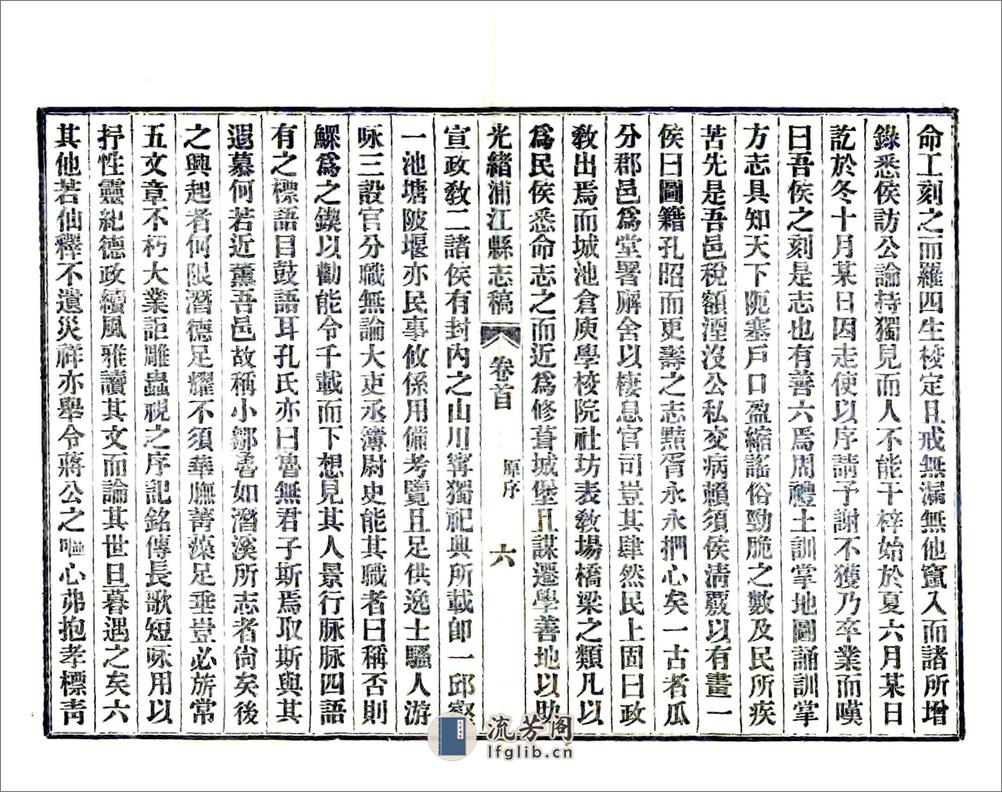 命工刻之而羅四生校定且戒無漏無他竄入而諸所增
錄悉侯訪公論持獨見而人不能干梓始於夏六月某日
訖於冬十月某日因走使以序請予謝不獲乃卒業而嘆
曰吾侯之刻是志也有善六焉周禮土訓掌地圖誦訓掌
方志具知天下阨塞戶口盈縮謠俗勁脆之數及民所疾
苦先是吾邑稅額湮沒公私交病賴須侯清覈以有畫一
侯曰圖籍孔昭而更壽之志黠胥永永捫心矣一古者瓜
分郡邑爲堂署廨舍以棲息官司豈其肆然民上固曰政
敎出焉而城池倉庾學校院社坊表敎場橋梁之類凡以
爲民侯悉命志之而近爲修葺城堡且謀遷學善地以助
光緒浦江縣志稿
卷首
原序
六
宣政敎二諸侯有封內之山川寧獨祀典所載卽一邱壑
一池塘陂堰亦民事攸係用備考覽且足供逸士騷人游
咏三設官分職無論大吏丞簿尉史能其職者曰稱否則
鰥爲之鍥以勸能令千載而下想見其人景行脉脉四語
有之標語目鼓語耳孔氏亦曰魯無君子斯焉取斯與其
遐慕何若近薰吾邑故稱小鄒魯如潛溪所志者尙矣後
之興起者何限潛德足耀不須華膴菁藻足垂豈必旂常
五文章不朽大業詎雕蟲視之序記銘傳長歌短咏用以
抒性靈紀德政續風雅讀其文而論其世旦暮遇之矣六
其他若仙釋不遺災祥亦舉令蔣公之嘔心茀抱孝標靑
流芳阁
lfglib.cn